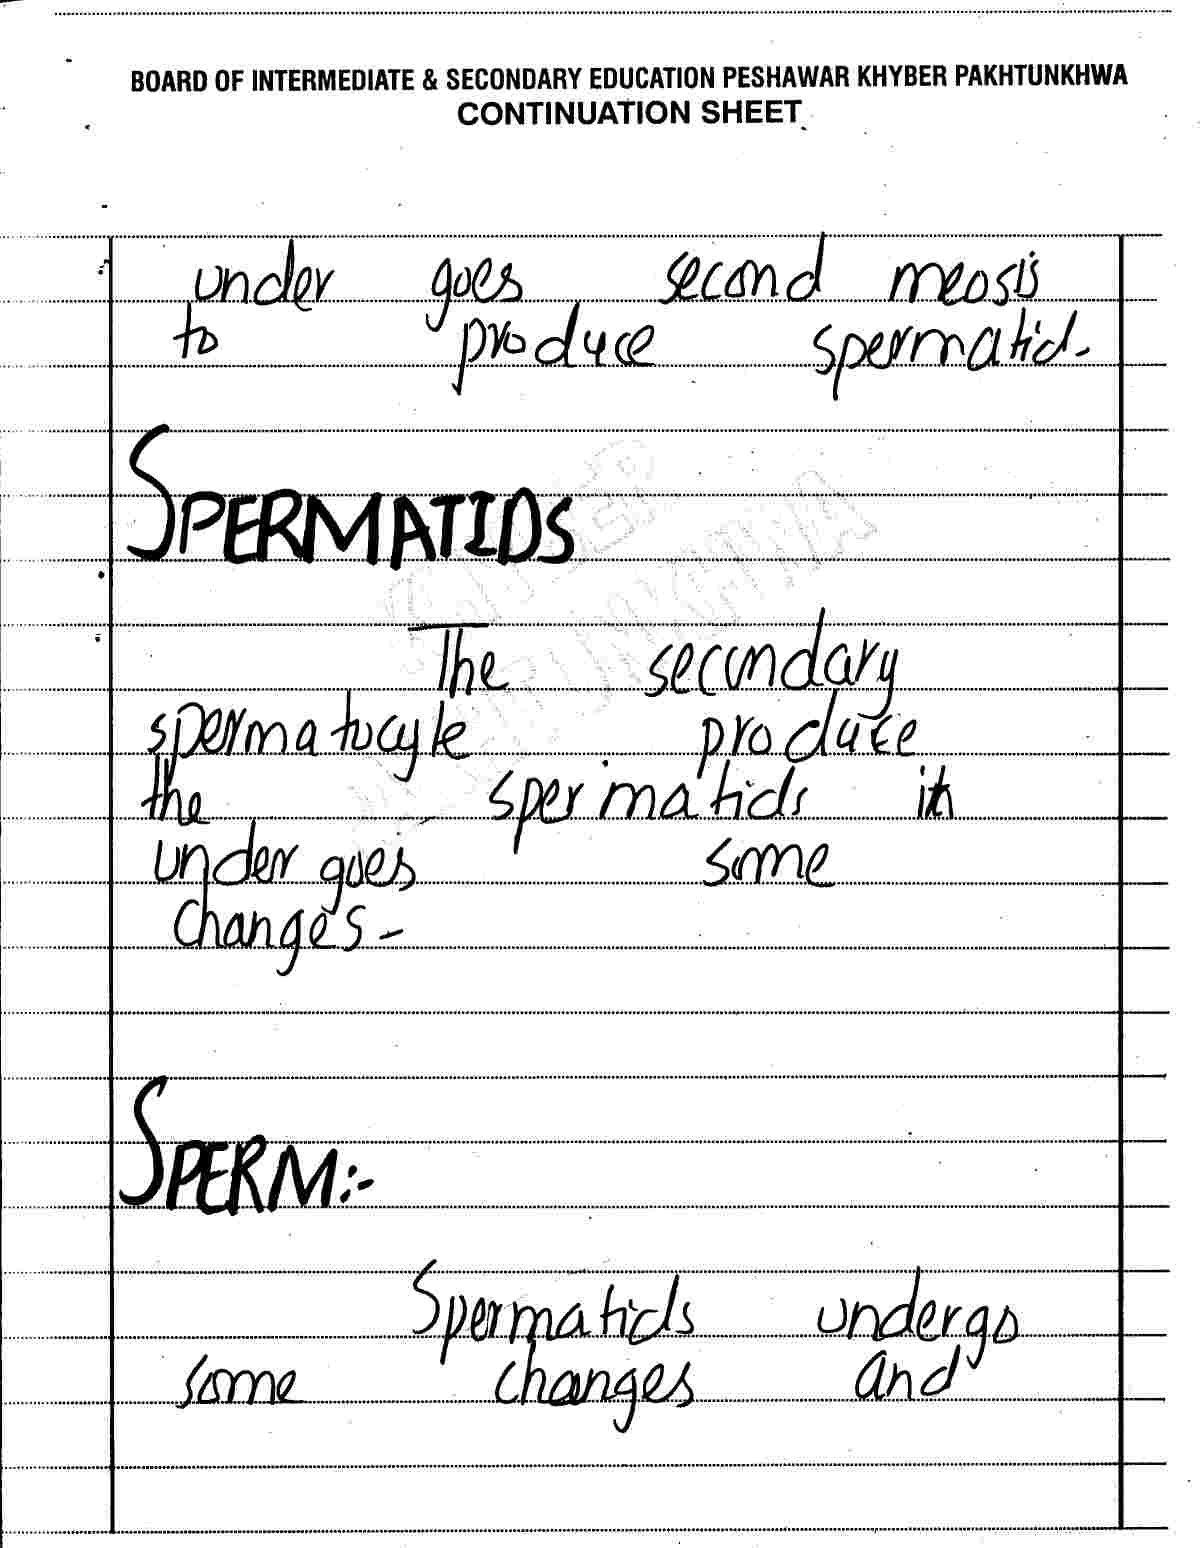 BOARD OF INTERMEDIATE & SECONDARY EDUCATION PESHAWAR KHYBER PAKHTUNKHWA
CONTINUATION SHEET
under goes second meosis
to produce spermatid.
SPERMATIDS
The secondary
spermatocyte produce
the spermatids it
under goes some
changes-
SPERM:-
Spermatids undergo
some changes and